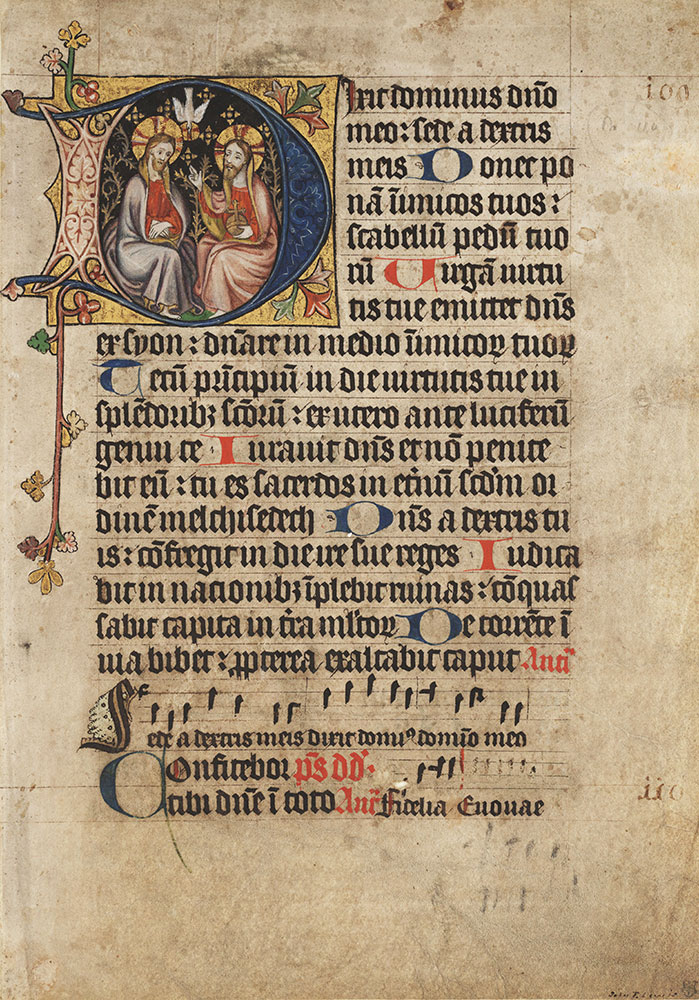 Dixit dominus dño
meo : sede a dextris
meis Donec po
nã ĩimicos tuos :
scabellũ pedũ tuo
rũ Uirgã uirtu
tis tue emittet dñs
ex syon : dñare in medio ĩimicoꝝ tuoꝝ
Tecũ prĩcipiũ in die uirtutis tue in
splẽdoribꝫ sc̃orũ : ex utero ante luciferũ
genui te Iurauit dñs et nõ penite
bit eũ : tu es sacerdos in et̃nũ scd̃m or
dinẽ melchisedech Dñs a dextris tu
is : cõfregit in die ire sue reges Iudica
bit in nacionibꝫ ĩplebit ruinas : cõquas
sabit capita in t̃ra ml̃toꝝ De torrẽte ĩ
uia bibet : ꝓpterea exaltabit caput Antᷓ
Sede a dextris meis dixit domiꝰ domĩo meo
Confitebor p̃s dd̃.
tibi dñe ĩ toto Antᷓ Fidelia Euouae
109
110